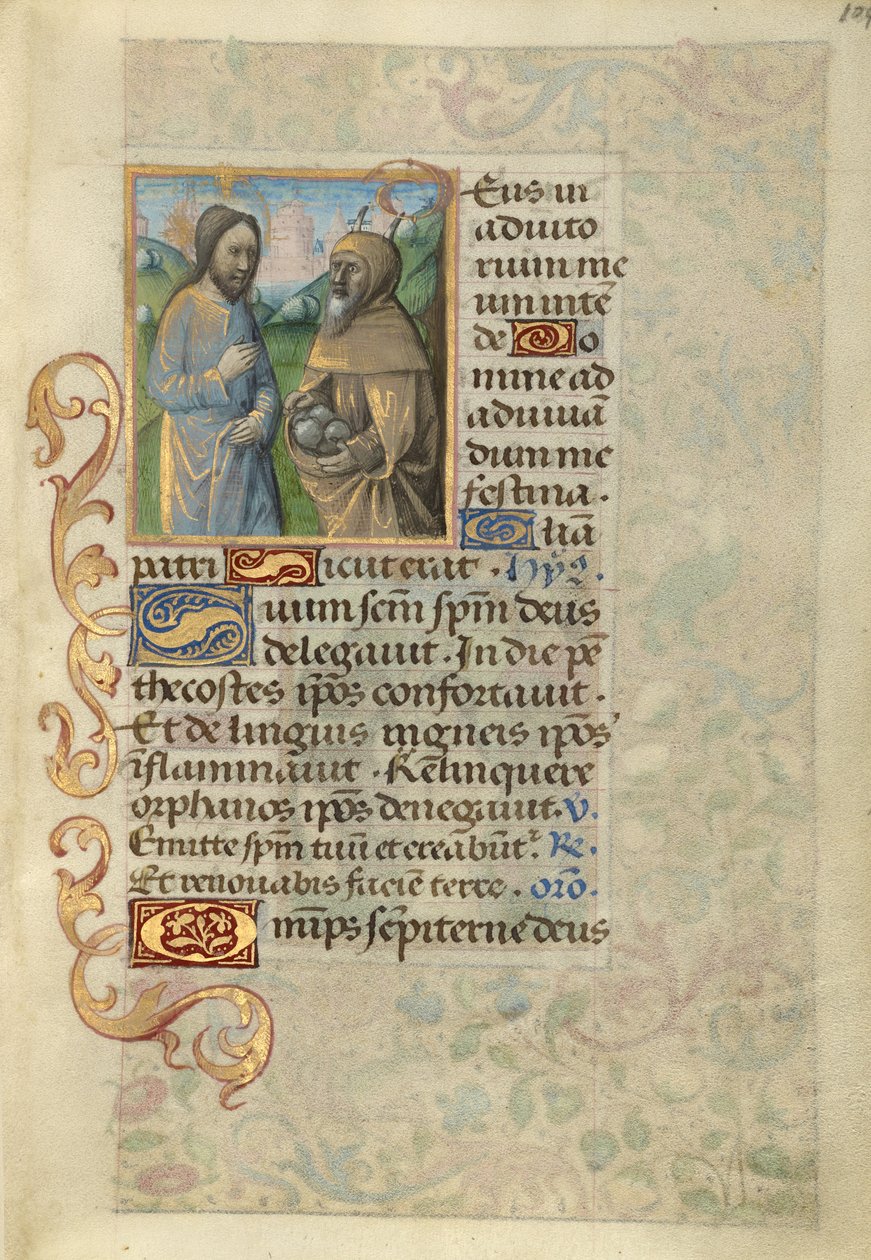 109
Deus in
adiuto
rium me
um intē
de Do
mine ad
adiuuā
dum me
festina .
Gliā
patri Sicut erat . hyꝰ.
Suum scm̄ spm̄ deus
delegauit . In die pē
thecostes ip̄os confortauit .
Et de linguis ingneis ip̄os
īflaminauit . Relinquere
orphanos ip̄os denegauit. V.
Emitte spm̄ tuū et creābūtᷣ. Re.
Et renouabis faciē terre . orō.
Omīps sēpiterne deus